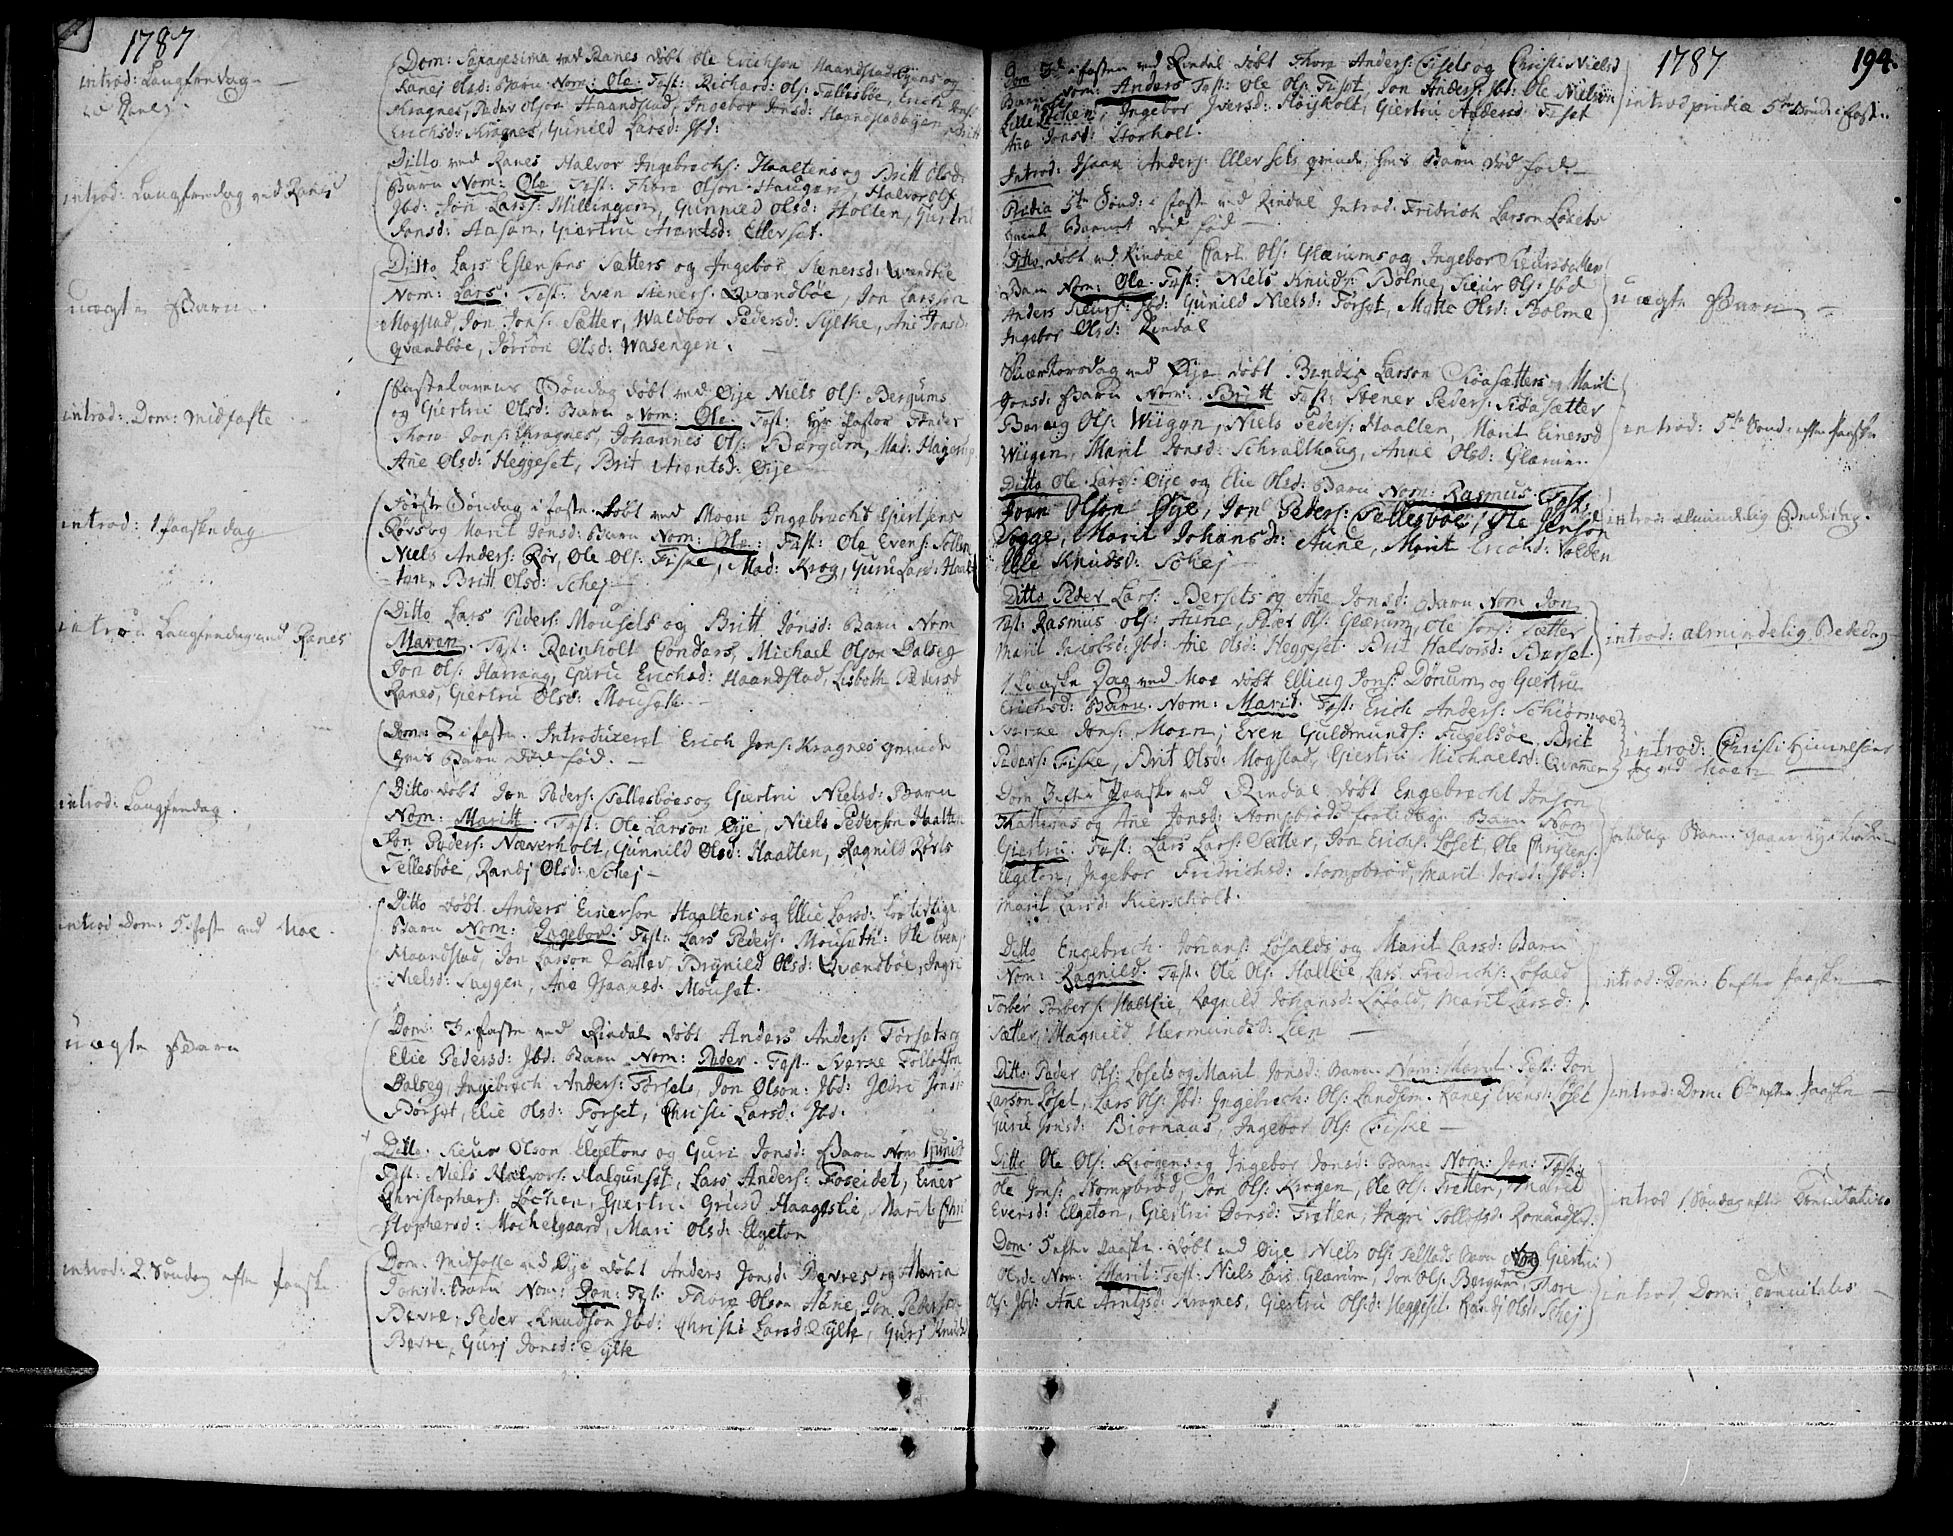 1787
introd: Langfredag
ved Ranes.
Dom: Sexagesima ved Ranes döbt Ole Erichson Haandstadböyens og
Ranej Olsd: Barn Nom: Ole. Test: Richard: Ols: Tellesböe, Erich Jons:
Kragnes, Peder Olson Haandstad, Ingebor Jonsd: Haanstadböyen, Britt
Erichsd: Kragnes, Gunild Larsd: Ibd:
introd: Langfredag ved Ranes
Ditto ved Ranes Halvor Ingebrechs: Haaltens og Britt Olsd:
Barn Nom: Ole Test: Thore Olson Haugen, Halvor Ols:
Ibd: Jon Lars: Millingen, Gunnild Olsd: Holten, Giertru
Jonsd: Aasen, Giertru Arentsd: Ellerset.
uægte Barn.
Ditto Lars Estensens Sætters og Ingebor Stenersd: Qvændböe
Nom: Lars. Test: Even Steners: Qvændböe, Jon Larsson
Mogstad, Jon Jons: Sætter, Waldbor Pedersd: Sylte, Ane Jonsd:
Qvændböe, Jörön Olsd: Wasengen.
introd: Dom: midfaste
Fastelavens Söndag döbt ved Öye Niels Ols: Bergums
og Giertru Olsd: Barn Nom: Ole. Test: Hr Pastor Tönder
Thore Jons: Kragnes, Johannes Ols: Bergum, Mad: Hagerup,
Ane Olsd: Heggeset, Brit Arentsd: Öye
introd: 1. Paaskedag
Förste Söndag i faste döbt ved Moen Ingebrecht Giertsens
Rövs og Marit Jonsd: Barn Nom: Ole. Test: Ole Evens: Solem
Niels Anders: Röv, Ole Ols: Fiske, Mad: Krog, Guru Larsd: Haal-
ten, Britt Olsd: Schej
introd: Langfredag ved Ranes
Ditto Lars Peders: Mousets og Britt Jonsd: Barn Nom
Maren. Test: Reinholt Conders, Michael Olson Dalseg
Jon Ols: Harrang, Guru Erichsd: Haandstad, Lisbeth Pedersd
Ranes, Giertru Olsd: Mouset.
Dom: 2 i faste. Introduceret Erich Jons: Kragnes qvinde
hvis Barn död fød.
introd: Langfredag.
Ditto döbt Jon Peders: Tellesböes og Giertru Nielsd: Barn
Nom: Maritt. Test: Ole Larson Öye, Niels Pederson Haalten
Jon Peders: Næverholt, Gunnild Olsd: Haalten, Ragnild Rövls
Tellesböe, Randj Olsd: Schej
introd Dom: 5. i faste ved Moe.
Ditto döbt Anders Einerson Haaltens og Ellie Larsd: for tidlige
Barn Nom: Ingebor. Test: Lars Peders: Mouset: Ole Evens
Haandstad, Jon Larson Sætter, Brynild Olsd: Qvændböe, Ingri
Nielsd: Saggen, Ane Isaansd: Mouset.
uægte Barn
Dom: 3 i faste ved Rindal döbt Anders Anders: Törsets og
Elie Pedersd: Ibd: Barn Nom: Peder. Test: Sverke Tollefson
Dalseg, Ingebrech Anders: Törsets, Jon Olson: Ibd: Jari Jonsd:
Börset, Elie Olsd: Torset, Christi Larsd: Ibd.
Ditto. Siver Olson Elgetons og Guri Jonsd: Barn Nom Gunild
Test: Niels Halvors: Halgunset, Lars Anders: Foseidet, Einer
Christophers: Löchen, Giertru Grusd Haagslie, Marit Chri-
stophersd: Mochelgaard, Mari Olsd: Elgeton
introd: 2. Söndag efter Paaske
Dom: midfaste ved Öye döbt Anders Jonsd: Bævres og Maria
Jonsd: Barn Nom: Ron: Test: Thore Olson Aune, Jon Peders:
Bævre, Peder Knudson Ibd: Christi Larsd: Sylte, Gurj Knudsd
Bævre, Gurj Jonsd: Sylte
1787
194.
Dom 3de i fasten ved Rindal döbt Thore Anders: Fisets og Christi Nielsd
Barn Nom: Anders Test: Ole Ols: Fiset, Jon Anders: Ibd: Ole Nielson
Lille Löchen, Ingebor Iversd: Höisholt, Giertru Andersd Fiset
Ane Jonsd: Storholt.
introd pridia 5te Sönd: i faste.
Introd: Isaac Anders: Ellersets qvinde, hvis Barn död føde
Pridia 5te Sönd: i faste ved Rindal Introd. Fridrich Larson Løsets
qvinde Barnet död fød
Ditto döbt ved Rindal Carl Ols: Glærums og Ingebor Siursdatter
Barn Nom: Ole. Test: Niels Knuds: Bolme, Siur Ols: Ibd
Anders Siurs: Ibd: Gunild Nielsd: Törset, Mette Olsd: Bolme
Ingebor Olsd: Rindal
uægte Barn
Skiertorsdag ved Öye döbt Bendix Larson Röasætters og Marit
Jonsd: Barn Nom: Britt Test: Stener Peders: Sidasætter
Baraig Ols: Wiigen, Niels Peders: Haalten, Marit Einersd
Wiigen, Marit Jonsd: Schralthaug, Anne Olsd: Glærum.
introd: 5te Sönd: efter Paaske
Ditto Ole Lars: Öye og Elie Olsd: Barn Nom: Rasmus Test:
Joen Olson Öye, Jon Peders: Tellesböe, Ole Jenson
Sogge, Marit Johansd: Aune, Marit Erichsd: Volden
Elie Knudsd: Schej
introd: almindelig Bededag.
Ditto Peder Lars: Bersets og Ane Jonsd: Barn Nom Jon
Test: Rasmus Ols: Aune, Peder Ols: Glærum, Ole Jons: Sætter
Marit Jacobsd: Ibd: Ane Olsd: Heggeset. Brit Halvorsd: Berset.
introd: almindelig Bededag
1 Paaske Dag ved Moe döbt Elling Jons: Dörum og Giertru
Erichsd: Barn Nom: Marit. Test: Erich Anders: Schiörmoe
Sverke Jons: Moen, Even Guldmunds: Fugelsöe, Brit
Peders: Fiske, Brit Olsd: Mogstad, Giertru Michaelsd: Qvammen
introd: Christi Himmelfarts
dag ved Moen
Dom 3 efter Paaske ved Rindal döbt Engebrecht Jonson
og Ane Jonsd: Stompbröds fortidlig Barn Nom
Giertru. Test: Lars Lars: Sætter, Jon Erichs: Löset, Ole Christens:
Elgeton, Ingebor Fridrichsd: Stompbröd, Marit Jonsd: Ibd:
Marit Larsd: Kierscholt.
fortidlig Barn
Ditto Engebrech Johans: Löfalds og Marit Larsd: Barn
Nom: Ragnild. Test: Ole Ols: Haltlie, Lars Fridrichs: Löfald
Torber Torbers: Haltlie, Ragnild Johansd: Löfald, Marit Larsd:
Sætter, Magnild Hermundsd: Lien
introd: Dom: 6 efter Paaske
Ditto Peder Ols: Løsets og Marit Jonsd: Barn Nom: Marit Test: Jon
Larson Löset, Lars Ols: Ibd: Ingebrech: Ols: Landsem. Ranej Evens: Löset
Guru Jonsd: Biörnaas, Ingebor Ols: Fiske
introd: Dom: 6te efter Paaske
Ditto Ole Ols: Krogens og Ingebor Jonsd: Barn Nom: Jon: Test:
Ole Jons: Stompbröd, Jon Ols: Krogen, Ole Ols: Tretten, Marit
Eversd: Elgeton, Giertru Jonsd: Tretten, Ingri Tollofsd: Romundset
introd 1 Söndag efter Trinitatis
Dom. 5 efter Paaske. döbt ved Öye Niels Ols: Telstads Barn og Giertru
Olsd: Nom: Marit: Test: Niels Lars. Glærum, Jon Ols: Bergum, Thore
Ols: Ibd: Ane Arntzsd: Kragnes, Giertru Olsd: Heggeset. Randj Olsd: Schej
introd. Dom: Trinitatis